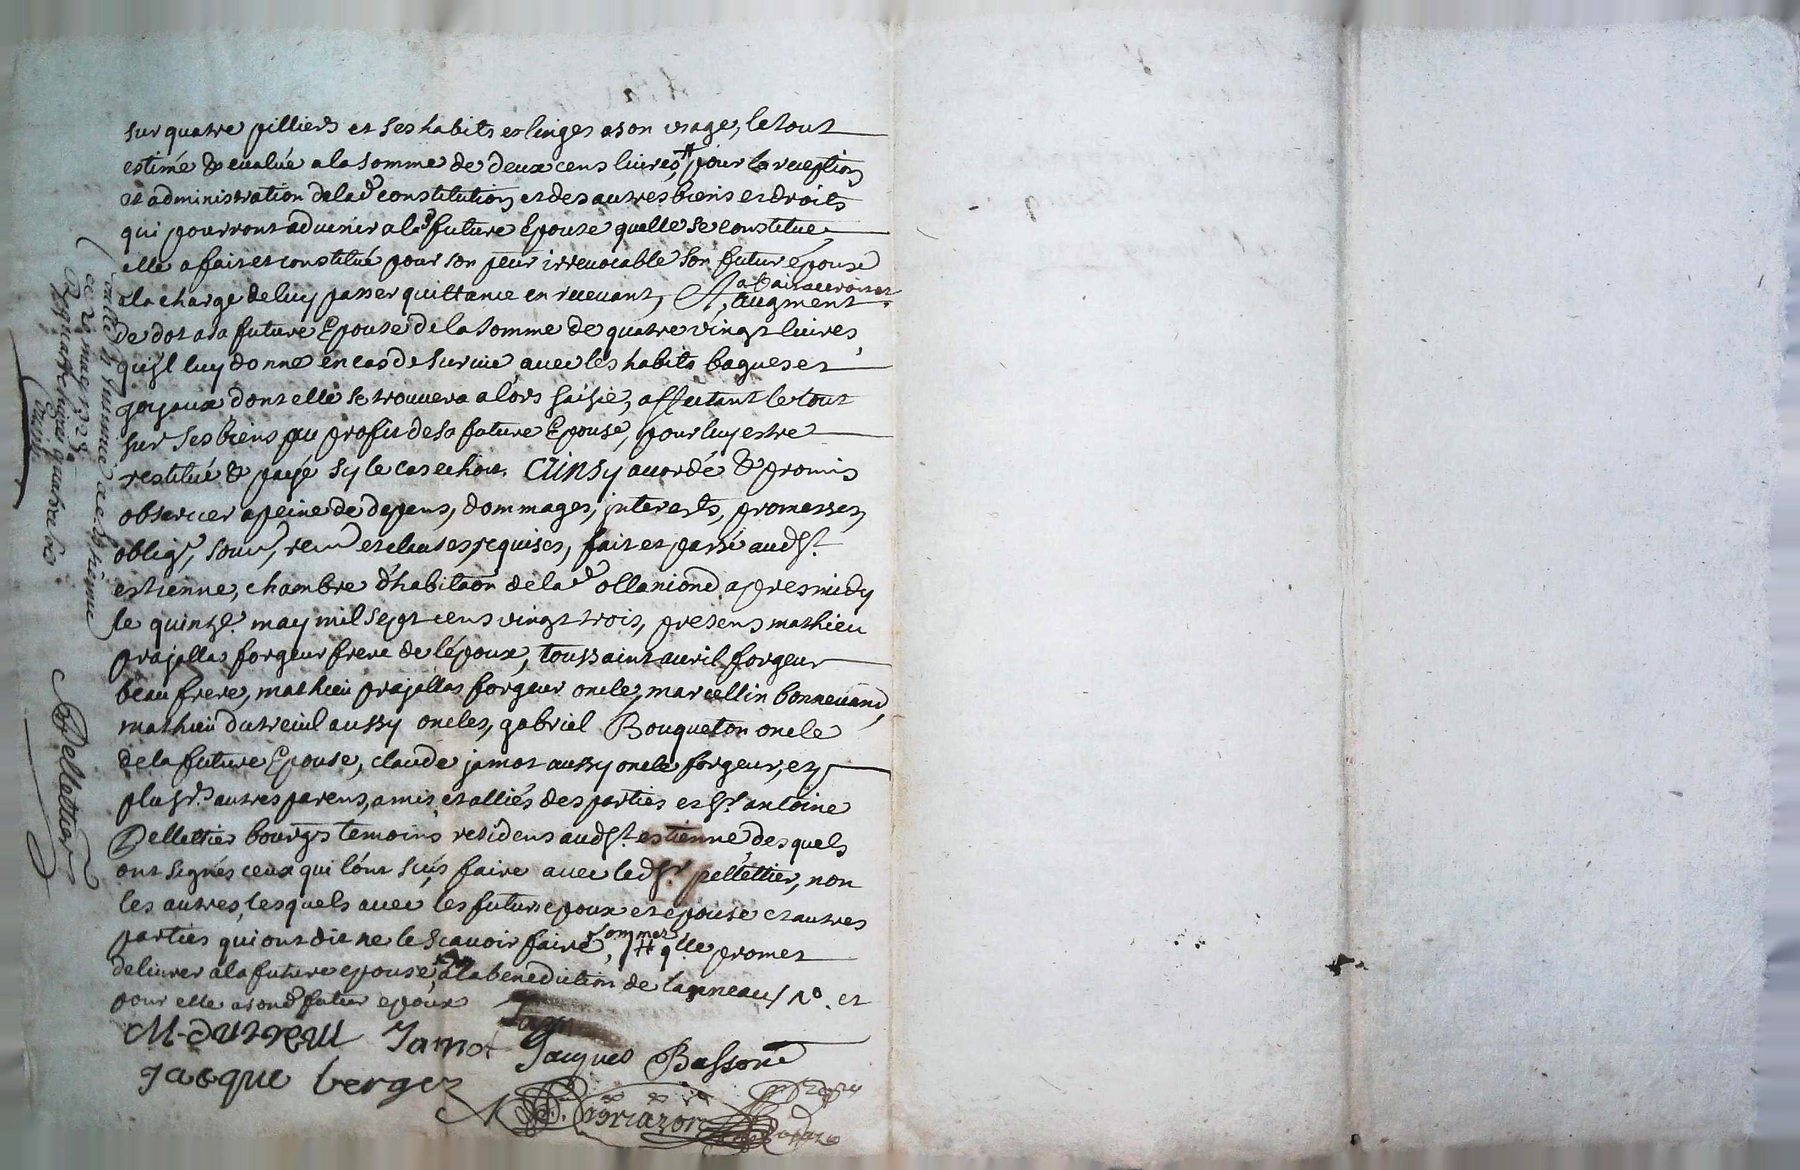 sur quatre pilliers et ses habits et linges a son usage, le tout
estimé & evalué a la somme de deux cens livres, # pour la reception
et administration de lad. constitution, et des autres biens et droits
qui pourront advenir a lad. future Epouse quelle se constitue,
elle a fait et constitué pour son peur irrevocable son futur époux
a la charge de luy passer quittance en recevant,
Augment
de dot a sa future Epouse de la somme de quatre vingt livres,
qu'jl luy donne en cas de survie avec les habits bagues et
joyaux dont elle se trouvera alors saisie, affectant le tout
sur ses biens au profit de sa future Epouse, pour luy estre
restitué & payé sy le cas echoit. AINSy accordé & promis
observer a peine de depens, dommages, jnterests, promesses,
oblig., soum., ren. et clauses requises, fait et passé aud. St.
estienne, chambre d'habitaon de lad. ollaniond apres midy
le quinze. may mil sept cens vingt trois, presens mathieu
prajallas forgeur frere de l'époux, toussaint avril forgeur
beau frere, mathieu prajallas forgeur oncle, marcellin bonnevand,
mathieu dutreuil aussy oncles, gabriel Bouqueton oncle
de la future Epouse, claude jamot aussy oncle forgeur, et
plusrs. autres parens, amis et alliés des parties et Sr. antoine
Pellettier bourgs temoins residens aud. St. estienne, desquels
ont signés ceux qui l'ont sçus faire avec led. Sr. pellettier, non
les autres, lesquels avec les futurs epoux et epouse et autres
parties qui ont dit ne le scavoir faire, sommez # q.lle promet
delivrer a la future epouse, a la benediction de l'anneau / No. et
pour elle a sond. futur epoux
M. dutreuil Jamot Jacques Bassone
Jacque berger
Pellettier